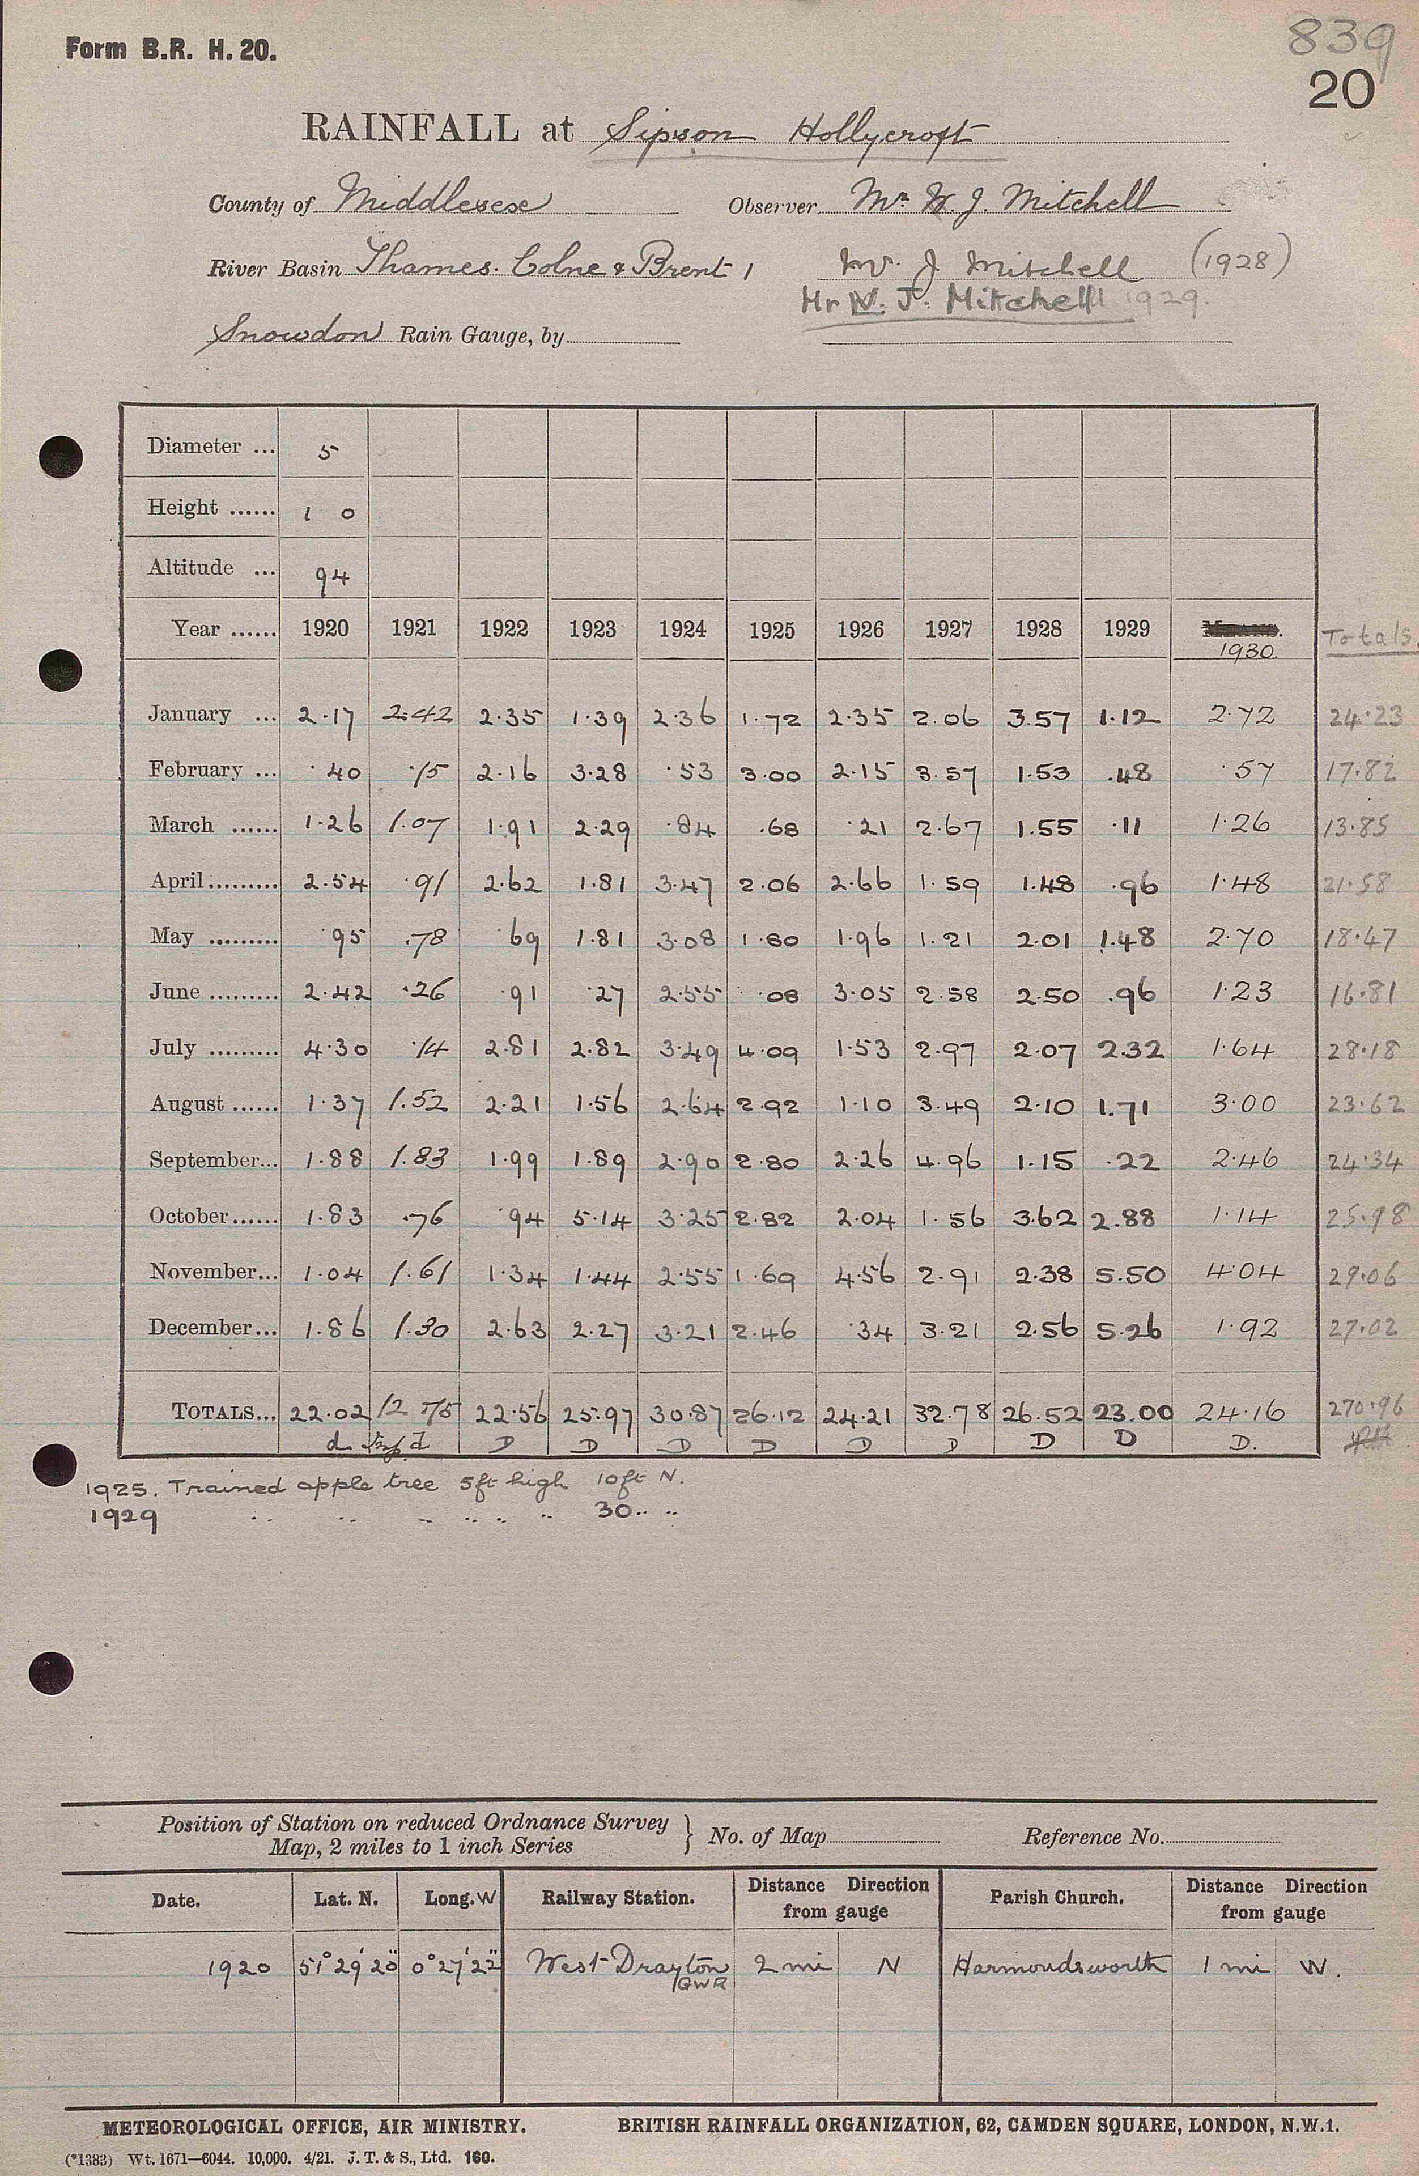 Form B.R. H. 20.
839
20
RAINFALL at Sipson Hollycroft
County of Middlesex Observer Mr W. J. Mitchell
River Basin Thames. Colne & Brent 1 W. J Mitchell (1928)
Mr W. J. Mitchell 1929.
Snowdon Rain Gauge, by
Diameter ... 5
Height ...... 1 0
Altitude ... 94
Year ...... 1920 1921 1922 1923 1924 1925 1926 1927 1928 1929 1930 Totals
January ... 2.17 2.42 2.35 1.39 2.36 1.72 2.35 2.06 3.57 1.12 2.72 24.23
February ... .40 .15 2.16 3.28 .53 3.00 2.15 3.57 1.53 .48 .57 17.82
March ...... 1.26 1.07 1.91 2.29 .84 .68 .21 2.67 1.55 .11 1.26 13.85
April ......... 2.54 .91 2.62 1.81 3.47 2.06 2.66 1.59 1.48 .96 1.48 21.58
May ......... .95 .78 .69 1.81 3.08 1.80 1.96 1.21 2.01 1.48 2.70 18.47
June ......... 2.42 .26 .91 .27 2.55 .08 3.05 2.58 2.50 .96 1.23 16.81
July ......... 4.30 .14 2.81 2.82 3.49 4.09 1.53 2.97 2.07 2.32 1.64 28.18
August ...... 1.37 1.52 2.21 1.56 2.64 2.92 1.10 3.49 2.10 1.71 3.00 23.62
September... 1.88 1.83 1.99 1.89 2.90 2.80 2.26 4.96 1.15 .22 2.46 24.34
October ...... 1.83 .76 .94 5.14 3.25 2.82 2.04 1.56 3.62 2.88 1.14 25.98
November... 1.04 1.61 1.34 1.44 2.55 1.69 4.56 2.91 2.38 5.50 4.04 29.06
December... 1.86 1.30 2.63 2.27 3.21 2.46 .34 3.21 2.56 5.26 1.92 27.02
TOTALS... 22.02 12.75 22.56 25.97 30.87 26.12 24.21 32.78 26.52 23.00 24.16 270.96
d d D D D D D D D D D.
1925. Trained apple tree 5ft high 10ft N.
1929 .. .. .. .. .. .. 30.. ..
Position of Station on reduced Ordnance Survey Map, 2 miles to 1 inch Series } No. of Map Reference No.
Date. Lat. N. Long. W Railway Station. Distance Direction from gauge Parish Church. Distance Direction from gauge
1920 51° 29' 20" 0° 27' 22" West Drayton GWR 2 mi N Harmondsworth 1 mi W.
METEOROLOGICAL OFFICE, AIR MINISTRY. BRITISH RAINFALL ORGANIZATION, 62, CAMDEN SQUARE, LONDON, N.W.1.
(*1383) Wt. 1671—6044. 10,000. 4/21. J. T. & S., Ltd. 160.